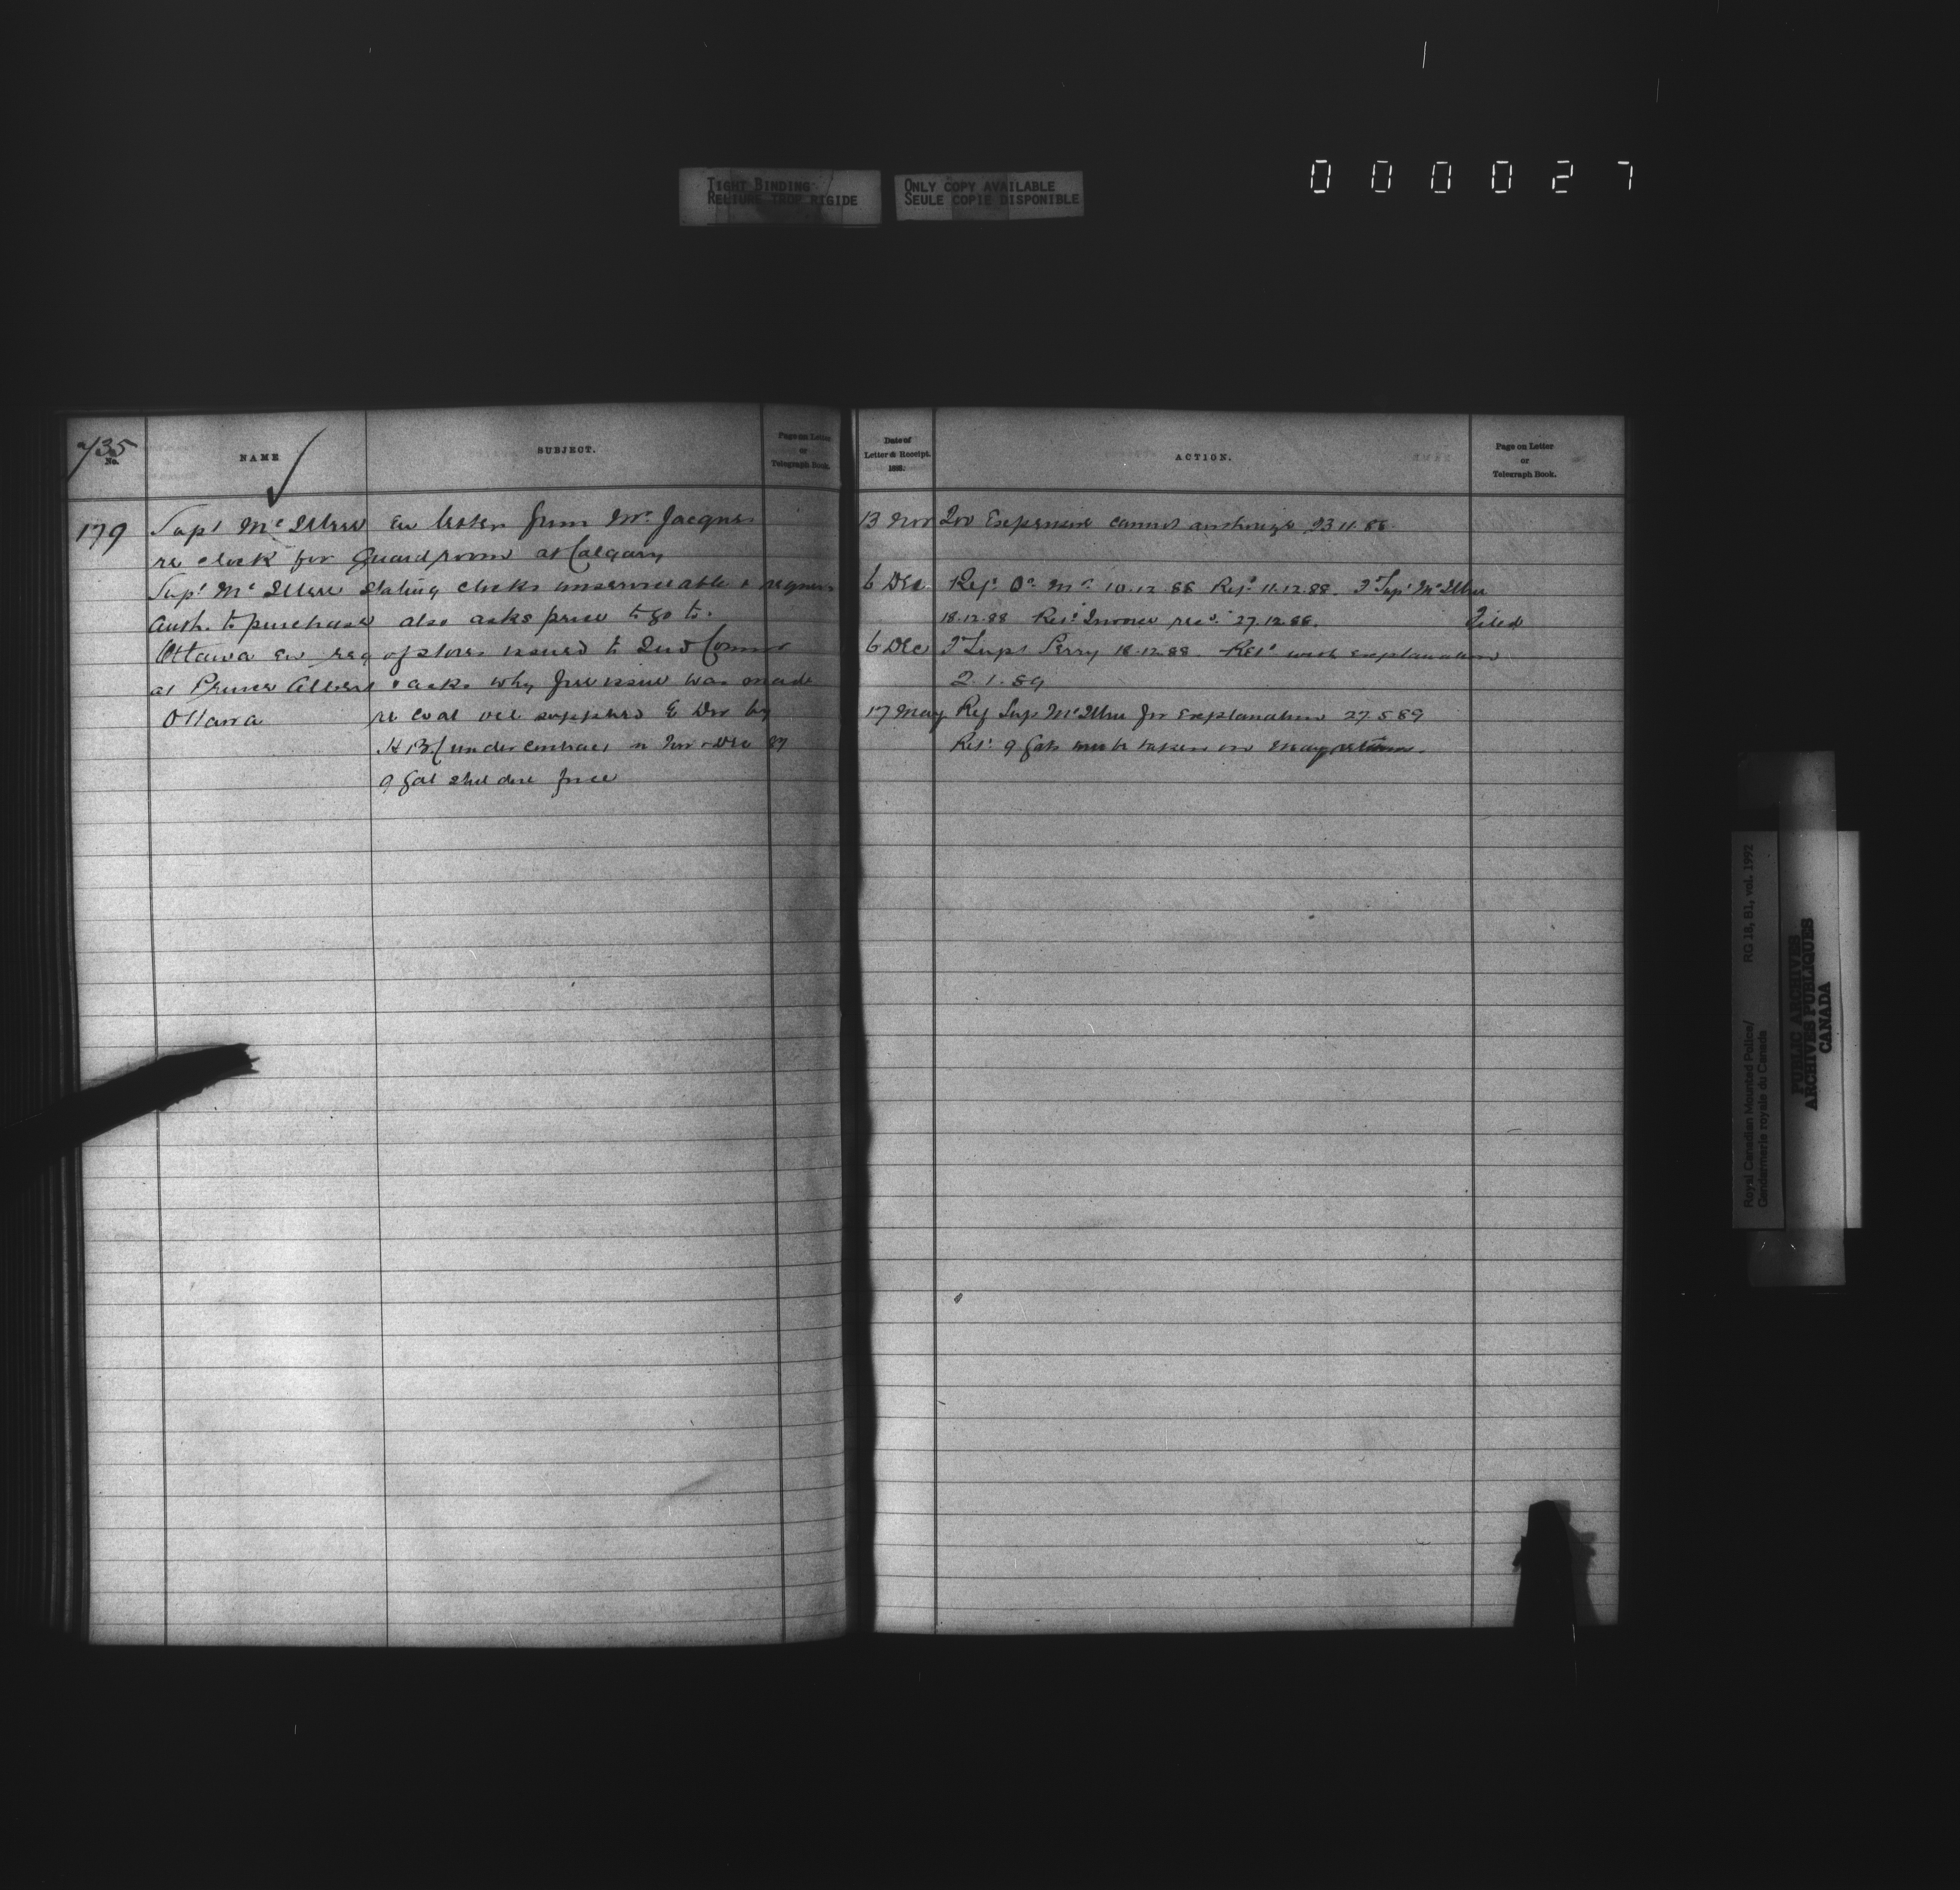 TIGHT BINDING
RELIURE TROP RIGIDE
ONLY COPY AVAILABLE
SEULE COPIE DISPONIBLE
000027
735
No.
NAME
SUBJECT.
Page on Letter
or
Telegraph Book.
179
Supt McIllree En letter from Mr. Jacques
re clock for Guard room at Calgary
Supt McIllree Stating clocks unserviceable & requires
Auth. to purchase also asks price to go to.
Ottawa En req of stores issued to Ind Commr
at Prince Albert & asks why free issue was made
Ottawa re Coal oil supplied E Div by
H B C under contract in Nov & Dec 87
9 Gal
Date of
Letter & Receipt.
188 .
ACTION.
Page on Letter
or
Telegraph Book.
13 Nov Too Expensive cannot authorize 23.11.88.
6 Dec Ref. Q. M. 10.12.88 11.12.88. Supt McIllree
18.12.88 Invoice recd. 27.12.88. Filed
6 Dec Supt Perry 18.12.88. Retd with explanation
2.1.89
17 May Ref Sup McIllree for Explanation 27.5.89
9 Gals taken on May return.
Royal Canadian Mounted Police/
Gendarmerie royale du Canada
RG 18, B1, vol. 1992
PUBLIC ARCHIVES
ARCHIVES PUBLIQUES
CANADA